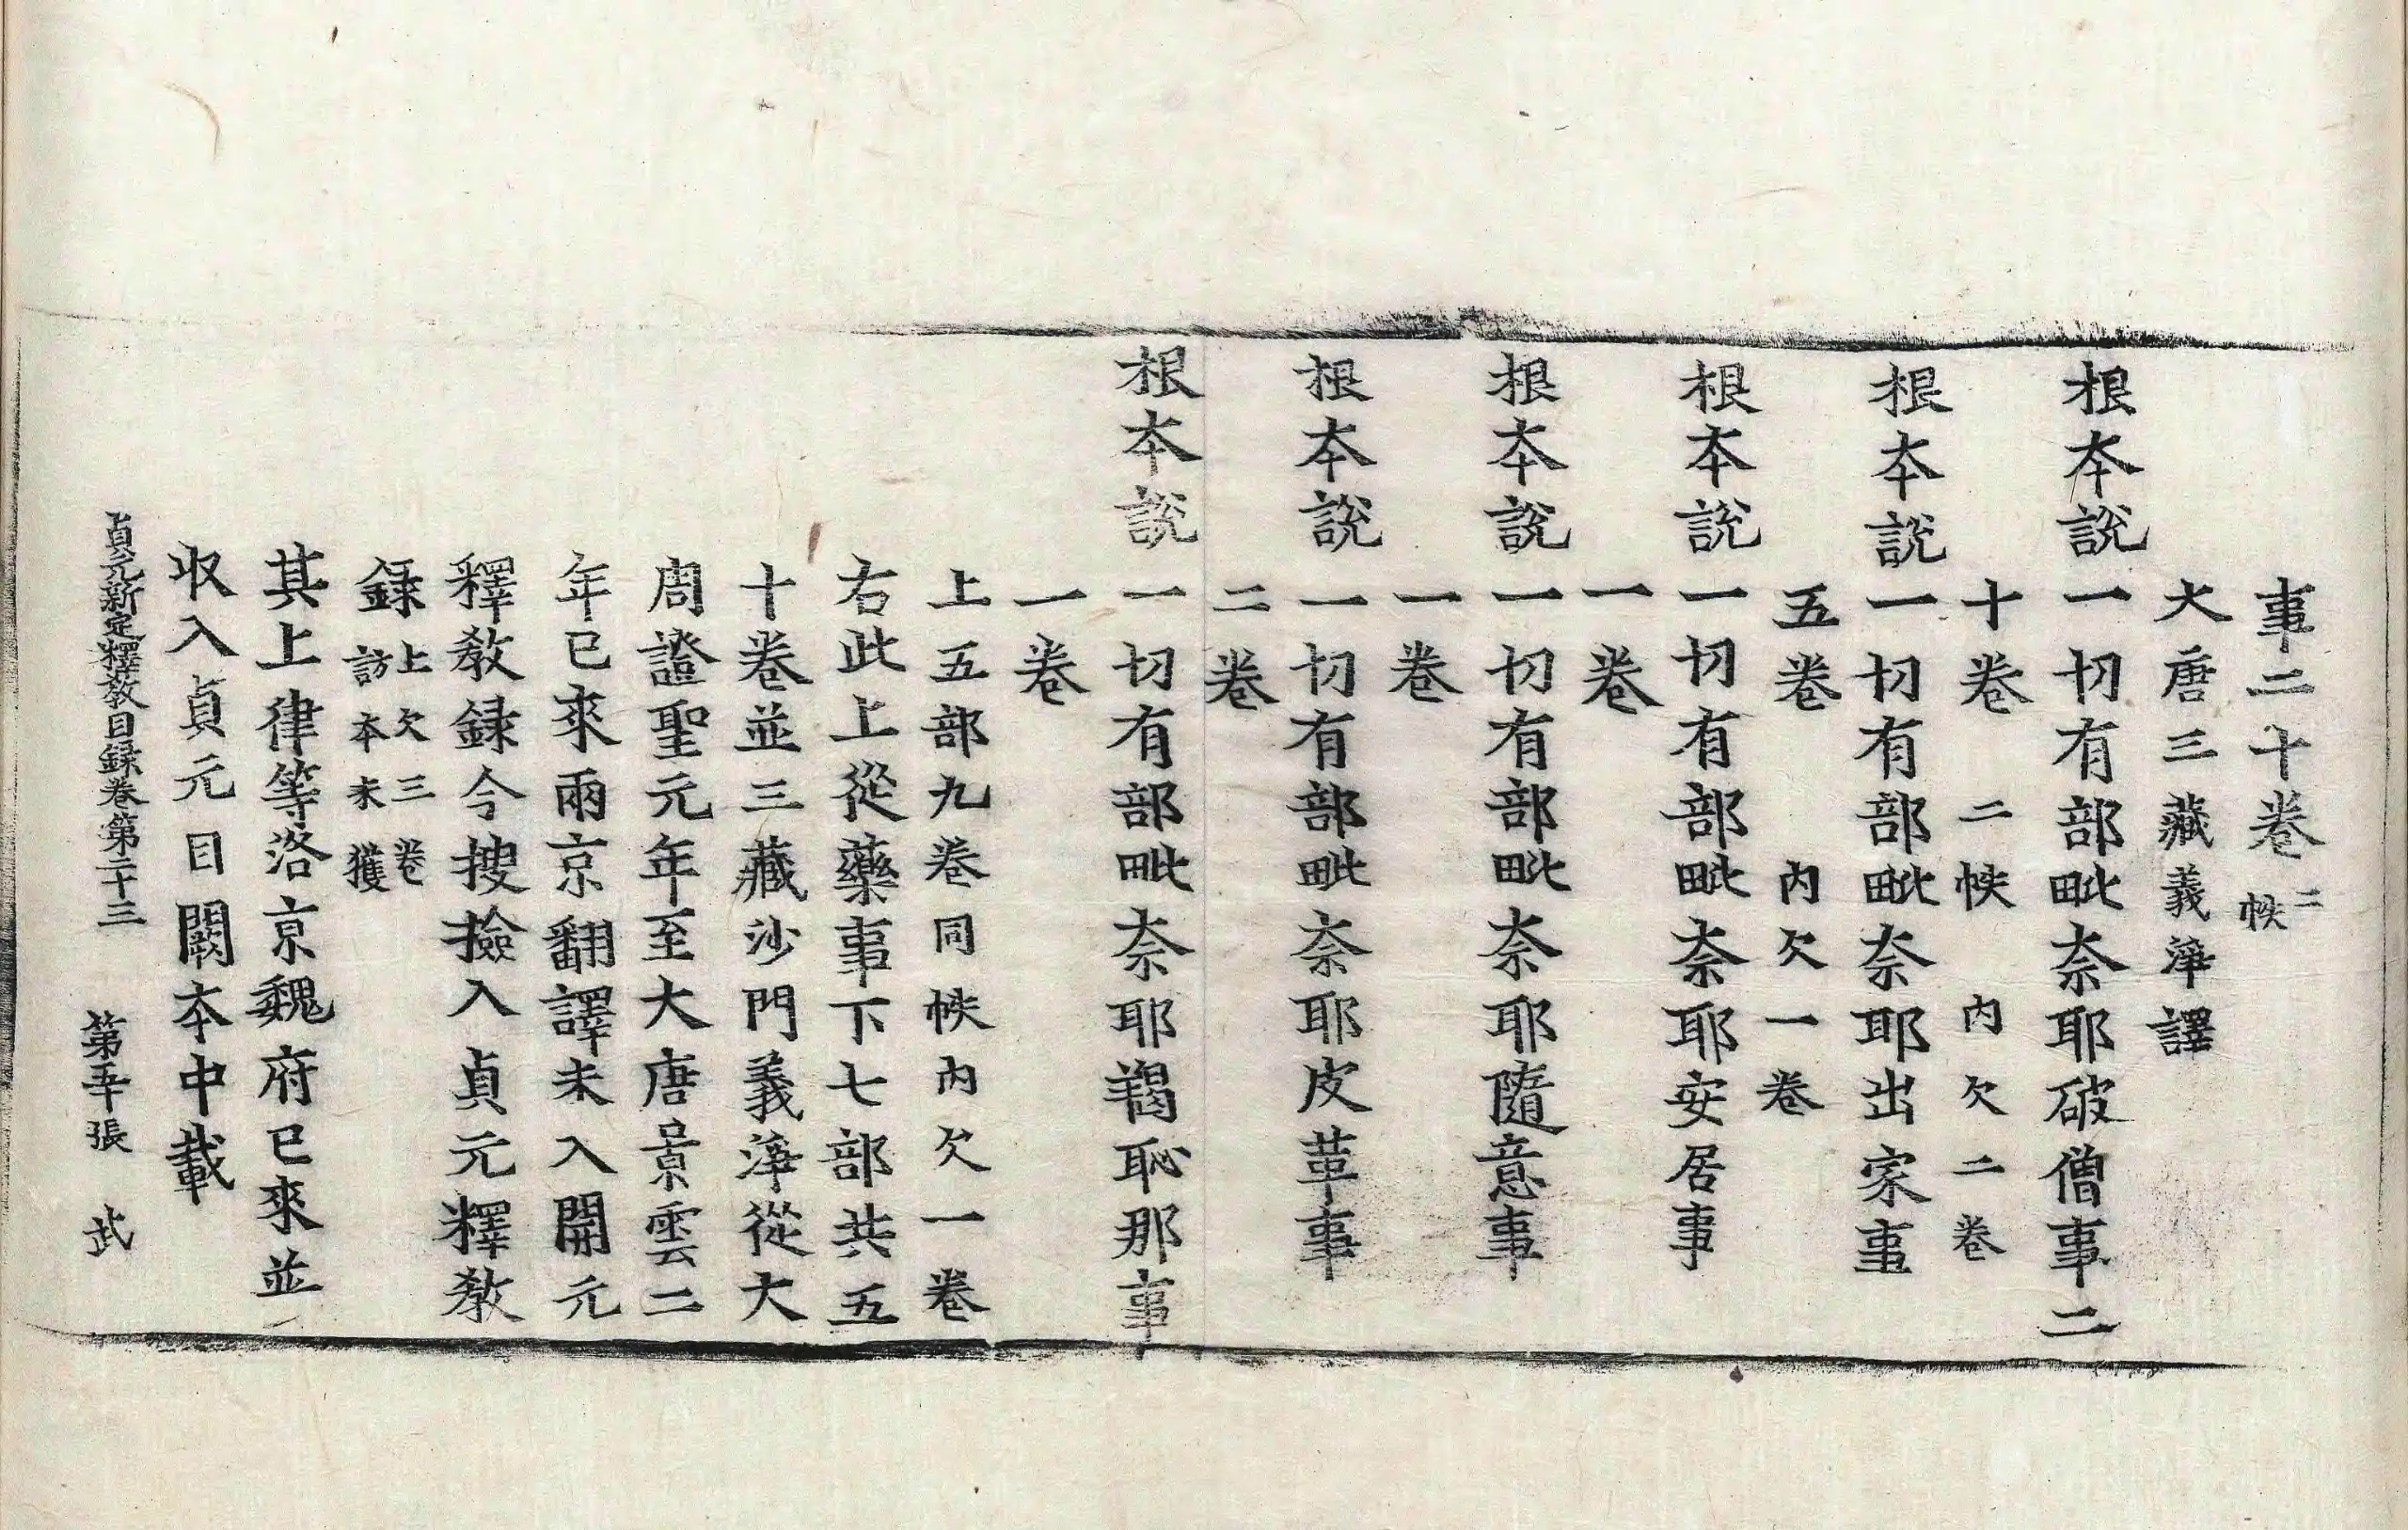 事二十卷二帙
大唐三藏義淨譯
根本說一切有部毗奈耶破僧事二
十卷二帙內欠二卷
根本說一切有部毗奈耶出家事
五卷內欠一卷
根本說一切有部毗奈耶安居事
一卷
根本說一切有部毗奈耶隨意事
一卷
根本說一切有部毗奈耶皮革事
二卷
根本說一切有部毗奈耶羯恥那事
一卷
上五部九卷同帙內欠一卷
右此上從藥事下七部共五
十卷並三藏沙門義淨從大
周證聖元年至大唐景雲二
年已來兩京翻譯未入開元
釋教録今搜撿入貞元釋教
録上欠三卷訪本未獲
其上律等洛京魏府已來並
收入貞元目闕本中載
貞元新定釋教目録卷第二十三 第五十張 武